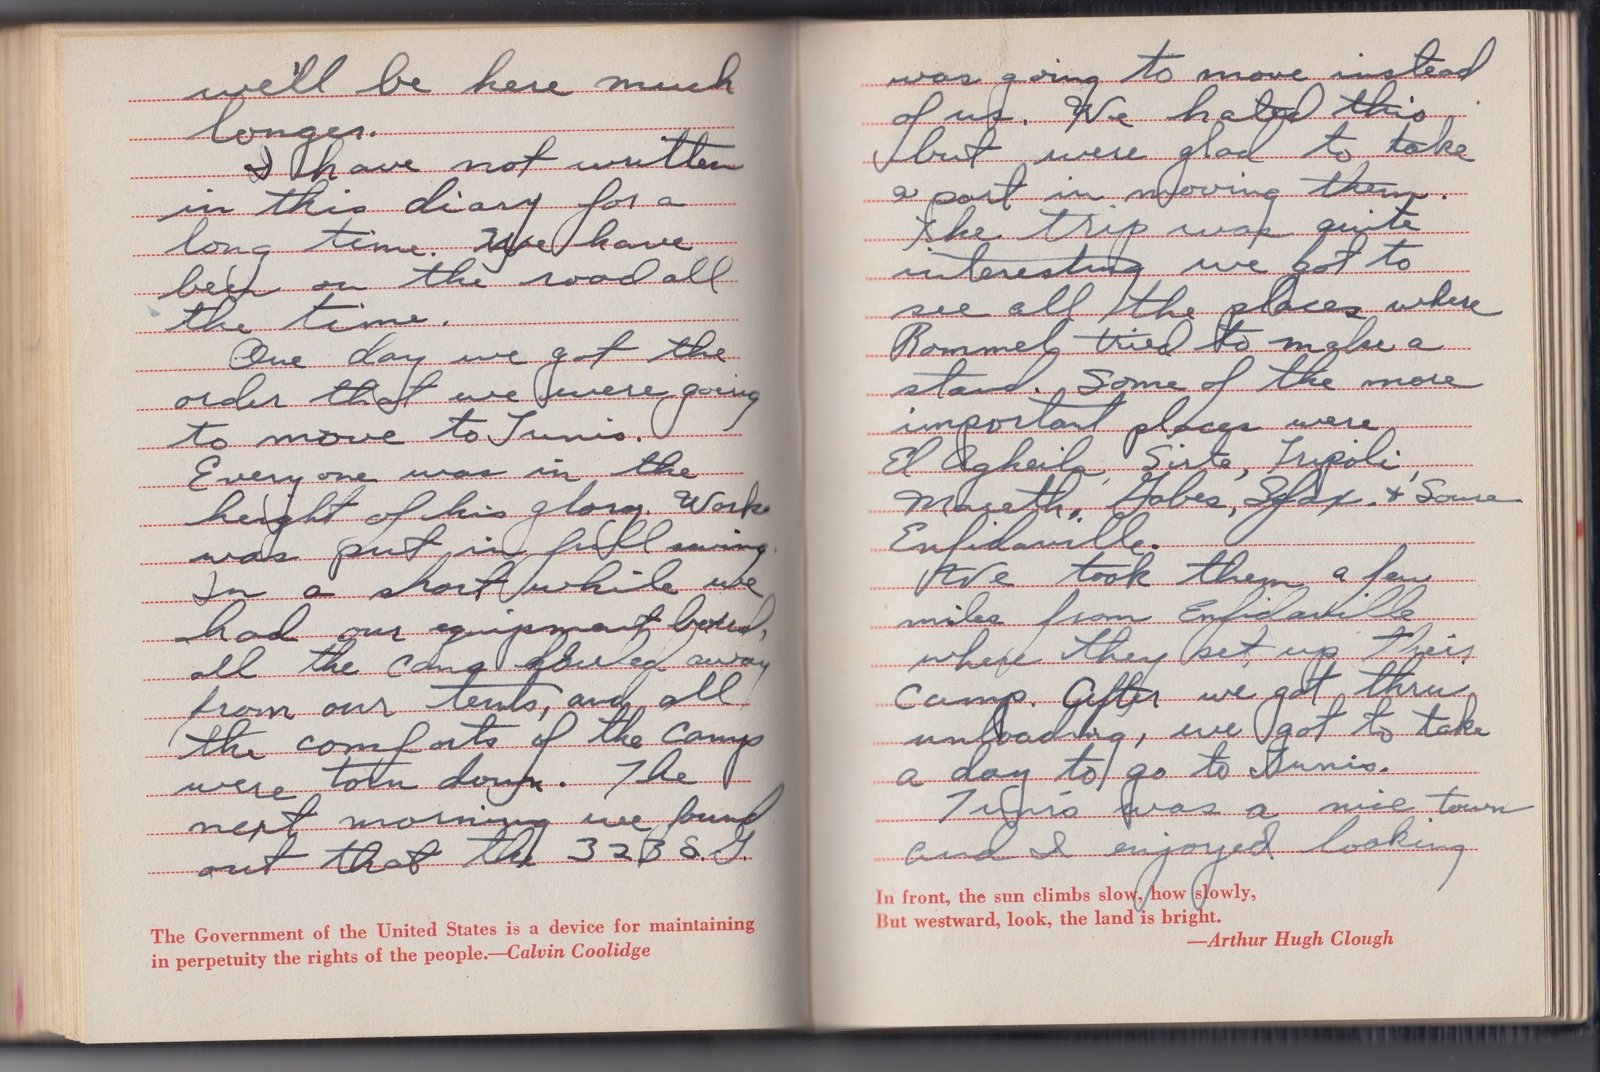 we'll be here much
longer.
I have not written
in this diary for a
long time. We have
been on the road all
the time.
One day we got the
order that we were going
to move to Tunis.
Everyone was in the
height of his glory. Work
was put in full swing.
In a short while we
had our equipment boxed,
all the camp
away
from our tents, and all
the comforts of the camp
were torn down. The
next morning we found
out that the 323 S.G.
The Government of the United States is a device for maintaining
in perpetuity the rights of the people.—Calvin Coolidge
was going to move instead
of us. We hated this
but were glad to take
a part in moving them.
The trip was quite
interesting we got to
see all the places where
Rommel tried to make a
stand. Some of the more
important places were
El Agheila, Sirte, Tripoli,
Mareth, Gabes, Sfax, & Souse
Enfidaville.
We took them a few
miles from Enfidaville
where they set up their
camp. After we got thru
unloading, we got to take
a day to go to Tunis.
Tunis was a nice town
and I enjoyed looking
In front, the sun climbs slow, how slowly,
But westward, look, the land is bright.
—Arthur Hugh Clough